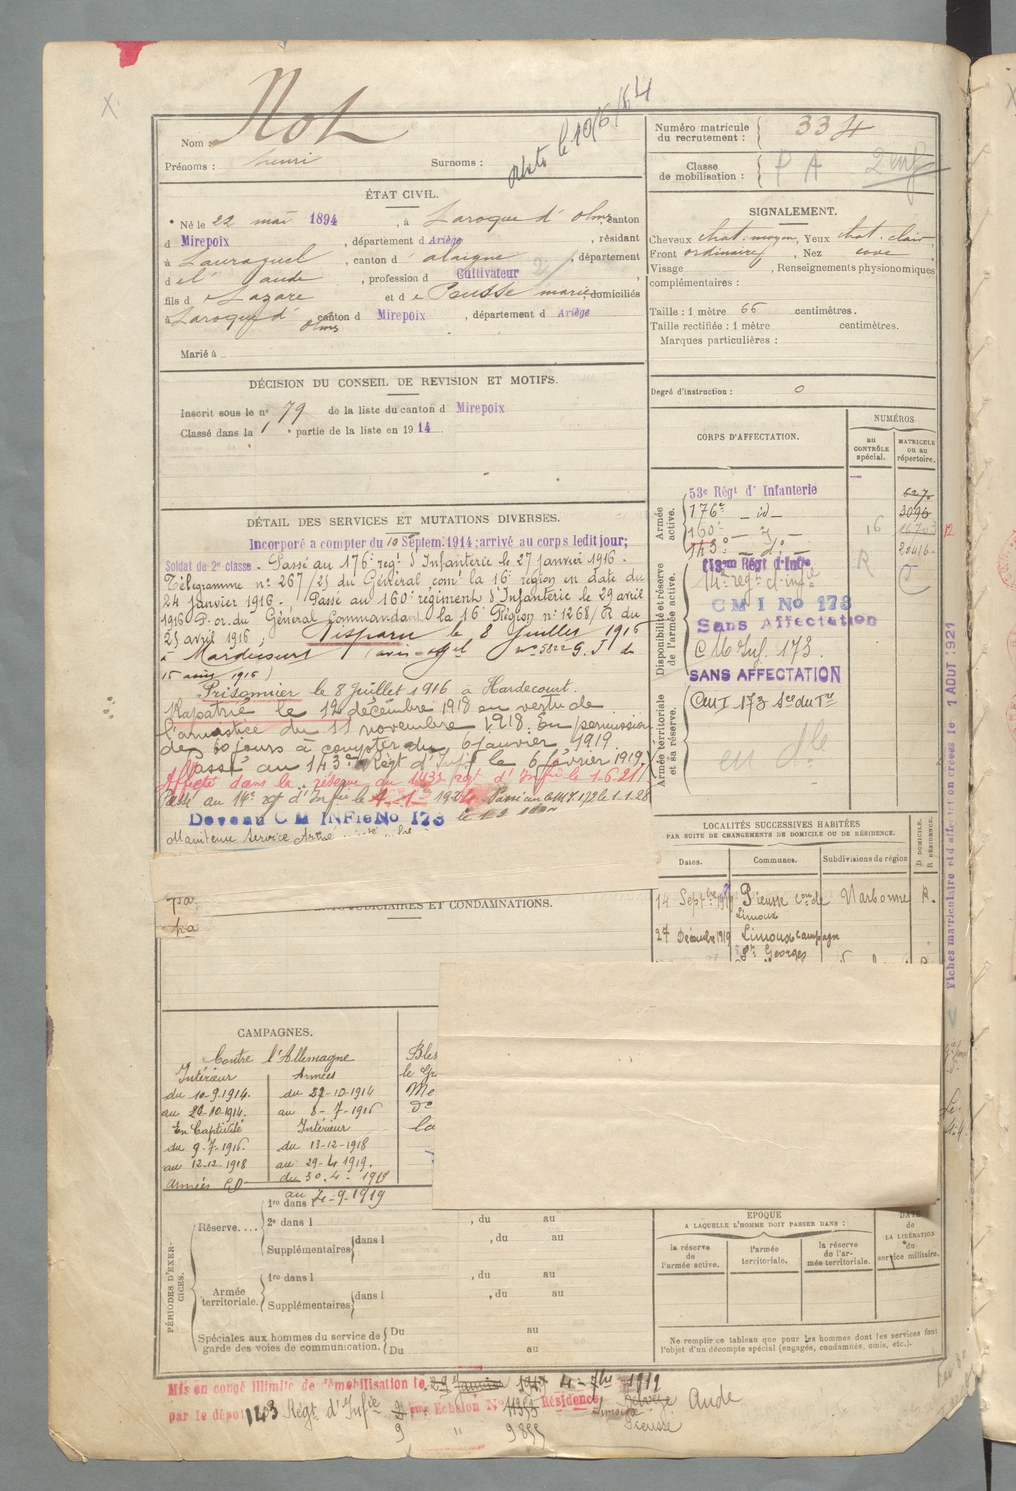 Nom : Not
Prénoms : henri Surnoms :
le 10/6/64
Numéro matricule du recrutement : 334
Classe de mobilisation : P A 2 enf
ÉTAT CIVIL.
Né le 22 mai 1894, à Laroque d'Olmes canton
d Mirepoix, département d Ariège, résidant
à Lauraguel, canton d'alaigne, département
d el aude, profession d Cultivateur
fils d e Lazare et d e Pousse marie, domiciliés
à Laroque d'Olmes canton d Mirepoix, département d Ariège
Marié à
SIGNALEMENT.
Cheveux chat. moyen, Yeux chat. clair,
Front ordinaire, Nez cave
Visage , Renseignements physionomiques
complémentaires :
Taille : 1 mètre 66 centimètres.
Taille rectifiée : 1 mètre centimètres.
Marques particulières :
Degré d'instruction : 0
DÉCISION DU CONSEIL DE REVISION ET MOTIFS.
Inscrit sous le n° 79 de la liste du canton d Mirepoix
Classé dans la 1 e partie de la liste en 1914
CORPS D'AFFECTATION.
NUMÉROS
au CONTRÔLE spécial.
MATRICULE OU AU répertoire.
Armée active.
53e Régt d' Infanterie 6270
176e _ id _ 3096
160e _ d _ 16703
143e _ do _ 20416
Disponibilité et réserve de l'armée active.
14e régt d'infie
C M I No 173
Sans Affectation
C M Inf. 173.
SANS AFFECTATION
Armée territoriale et sa réserve.
Cm I 173
en dle
DÉTAIL DES SERVICES ET MUTATIONS DIVERSES.
Incorporé a compter du 10 Septem. 1914; arrivé au corps ledit jour;
Soldat de 2e classe. Passé au 176e regt d'Infanterie le 27 janvier 1916.
Télégramme n° 267/2S du Général comt la 16e région en date du
24 janvier 1916. Passé au 160e régiment d'Infanterie le 29 avril
1916 P. or. du Général Commandant la 16e Région n° 1268/R du
25 avril 1916; Disparu le 8 Juillet 1916
à Hardecourt
15 août 1916)
Prisonnier le 8 Juillet 1916 à Hardecourt.
Rapatrié le 12 décembre 1918 en vertu de
l'armistice du 11 novembre 1918. En permission
de 30 jours à compter du 6 Janvier 1919.
Passé au 143e Régt d'Infie le 6 février 1919.
Affecté dans la réserve au 143e regt d'Infie le 1.6.21
Passé au 14e regt d'Infie le 1924 Passé au CMI. 173 le 1.1.28
Devenu C M INFie No 173
Maintenu service Armé
CONDAMNATIONS.
LOCALITÉS SUCCESSIVES HABITÉES
PAR SUITE DE CHANGEMENTS DE DOMICILE OU DE RÉSIDENCE.
Dates. Communes. Subdivisions de région D DOMICILE. R RÉSIDENCE.
14 Septbre 1919 Pieusse con de Limoux Narbonne R.
27 Décembre 1919 Limoux Campagne
St Georges
Fiches matriculaire et d'affectation créées le 1 AOUT 1921
CAMPAGNES.
Contre l'Allemagne
Intérieur Armées
du 10-9-1914. du 22-10-1914
au 21-10-1914. au 8-7-1916
En Captivité Intérieur
du 9-7-1916. du 13-12-1918
au 12-12-1918 au 29-4-1919.
Armées CD du 30-4-1919
au 4-9-1919
PÉRIODES D'EXERCICES.
Réserve.... 1re dans l
2e dans l , du au
Supplémentaires dans l , du au
Armée territoriale. 1re dans l , du au
Supplémentaires dans l , du au
Spéciales aux hommes du service de garde des voies de communication. Du au
Du au
EPOQUE
A LAQUELLE L'HOMME DOIT PASSER DANS :
la réserve de l'armée active.
l'armée territoriale.
la réserve de l'armée territoriale.
DATE de LA LIBÉRATION du service militaire.
Ne remplir ce tableau que pour les hommes dont les services font
l'objet d'un décompte spécial (engagés, condamnés, omis, etc.).
Mis en congé illimité de démobilisation le 4 7bre 1919
par le dépôt 143 Régt d'Infie Echelon No Résidence Aude
9 " 9855 Pieusse